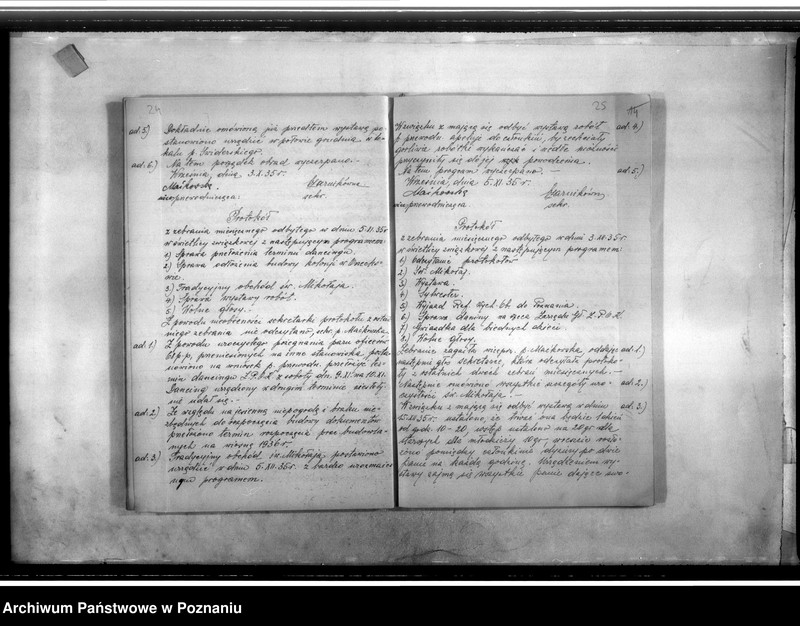 24
ad. 5) Dokładnie omówioną już przedtem wystawę po-
stanowiono urządzić w połowie grudnia w lo-
kalu p. Świderskiego.
ad. 6.) Na tem porządek obrad wyczerpano.
Września, dnia 3.X.35 r.
Maćkowska Czarnikówna
wiceprzewodnicząca. sekr.
Protokół
z zebrania miesięcznego odbytego w dniu 5.XI.35 r
w świetlicy związkowej z następującym programem:
1) Sprawa przełożenia terminu dancingu.
2) Sprawa odłożenia budowy kolonji w
3) Tradycyjny obchód św. Mikołaja.
4) Sprawa wystawy robót.
5) Wolne głosy.
Z powodu nieobecności sekretarki protokołu z ostat
niego zebrania nie odczytano, p. Maćkowska.
ad. 1) Z powodu uroczystego pożegnania paru oficerów
68 p.p. przeniesionych na inne stanowiska posta
nowiono na wniosek p. przewodn. przełożyć ter-
min dancingu z soboty dn. 9.XI. na 10.XI.
Dancing urządzony w drugim terminie niestety
nie udał się.
ad. 2.) Ze względu na jesienną niepogodę i braku nie-
zbędnych do rozpoczęcia budowy dokumentów
przełożono termin rozpoczęcia prac budowla-
nych na wiosnę 1936 r.
ad. 3.) Tradycyjny obchód św. Mikołaja, postanowiono
urządzić w dniu 5.XII.35 r. z bardzo urozmaico
nym programem.
25
14
W związku z mającą się odbyć wystawą robót ad. 4.)
p. przewodn. apeluje do członkiń, by rozpoczęły
gorliwie robótki wykańczać i w ten sposób
przyczyniły się do jej powodzenia.
Na tem program wyczerpano. – ad. 5.)
Września, dnia 5.XI.35 r.
Maćkowska Czarnikówna
wiceprzewodnicząca. sekr.
Protokół
z zebrania miesięcznego odbytego w dniu 3.XII.35 r.
w świetlicy związkowej z następującym programem:
1) Odczytanie protokołów
2) Św. Mikołaj.
3) Wystawa.
4) Sylwester.
5) Wyjazd Ref. Wych. Ob. do Poznania.
6) Sprawa daniny na rzecz Zarządu
7) Gwiazdka dla biednych dzieci.
8) Wolne głosy.
Zebranie zagaiła wiceprz. p. Maćkowska, oddając ad. 1.)
następnie głos sekretarce, która odczytała protoko-
ły z ostatnich dwóch zebrań miesięcznych. –
Następnie omówiono wszystkie szczegóły uro- ad. 2.)
czystości św. Mikołaja. –
W związku z mającą się odbyć wystawą w dniu ad. 3.)
15.XII.35 r. ustalono, że trwać ona będzie 1 dzień
od godz. 10–20, wstęp ustalono na 20 gr. dla
starszych dla młodzieży 10 gr, wreszcie rozło-
żono pomiędzy członkinie dyżury po dwie
panie na każdą godzinę. Urządzeniem wy-
stawy zajmą się wszystkie panie dające swo-
Archiwum Państwowe w Poznaniu